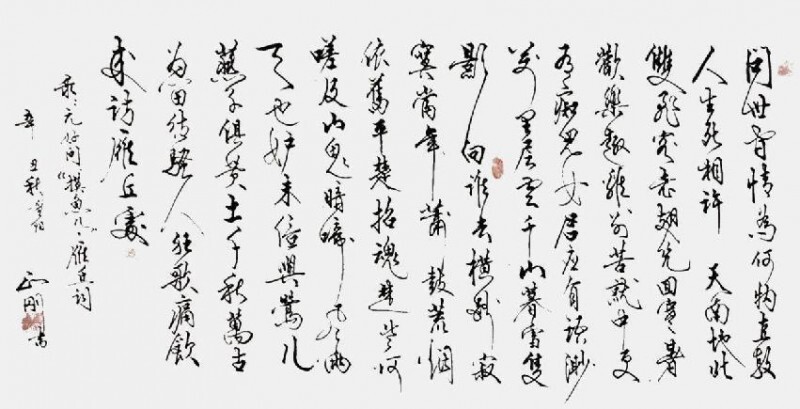 問世間情為何物直教
人生死相許 天南地北
雙飛客老翅幾回寒暑
歡樂趣離別苦就中更
有痴兒女君應有語渺
萬里層雲千山暮雪隻
影向誰去橫汾路寂
寞當年蕭鼓荒烟
依舊平楚招魂楚些何
嗟及山鬼暗啼風雨
天也妒未信與鶯兒
燕子俱黃土千秋萬古
為留待騷人狂歌痛飲
來訪雁丘處
元好问“摸鱼儿”雁丘词
辛丑秋
剛書